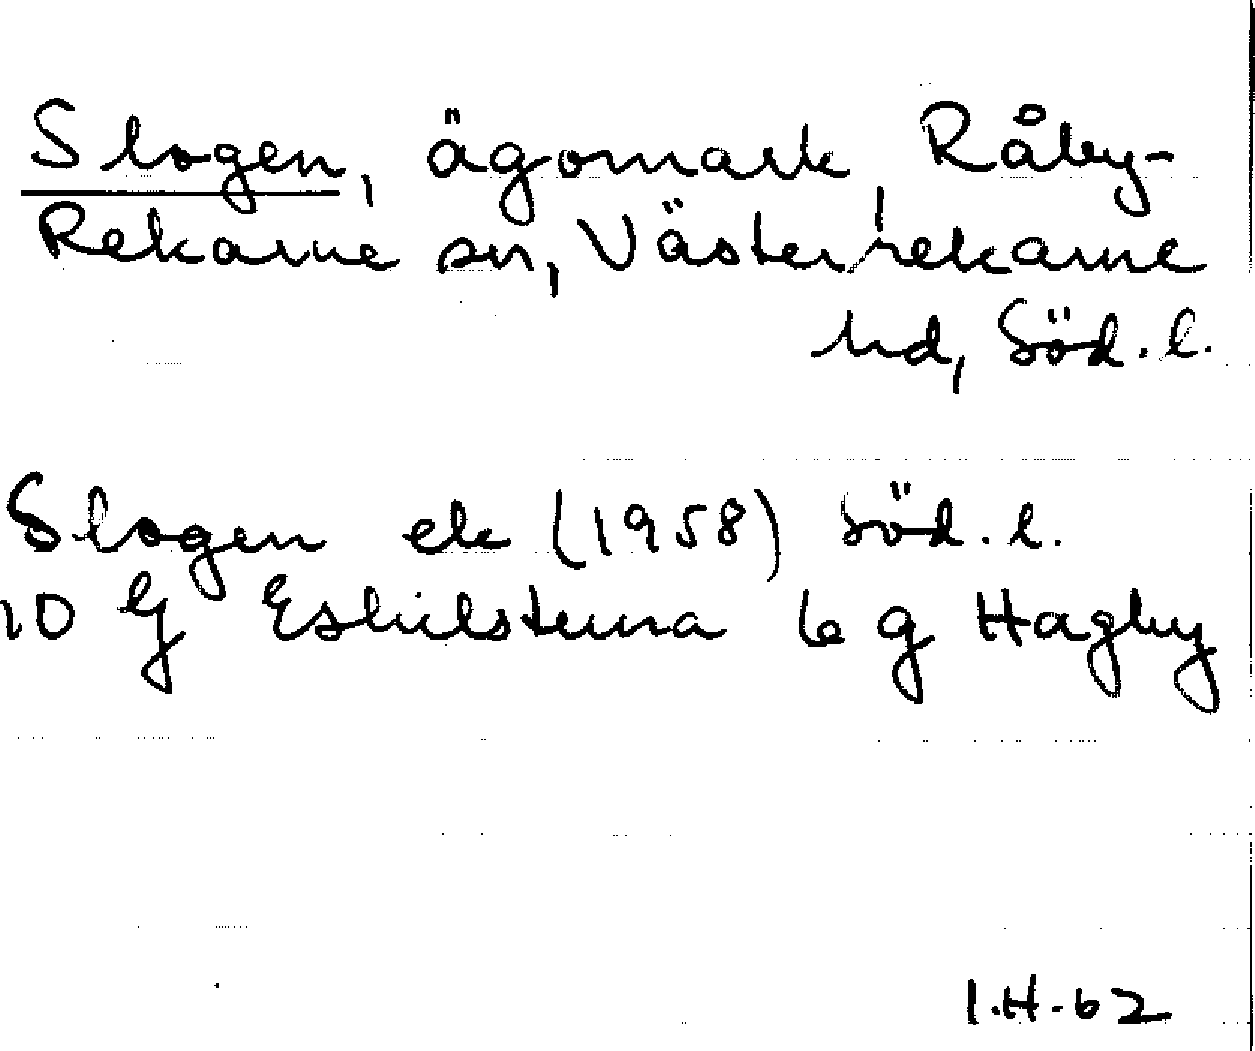 Slogen, ägomark, Råby-
Rekarne sn, Västerrekarne
hd, Söd. l.
Slogen ek (1958) Söd. l.
10 G Eskilstuna 6 g Hagby
I.H.-62